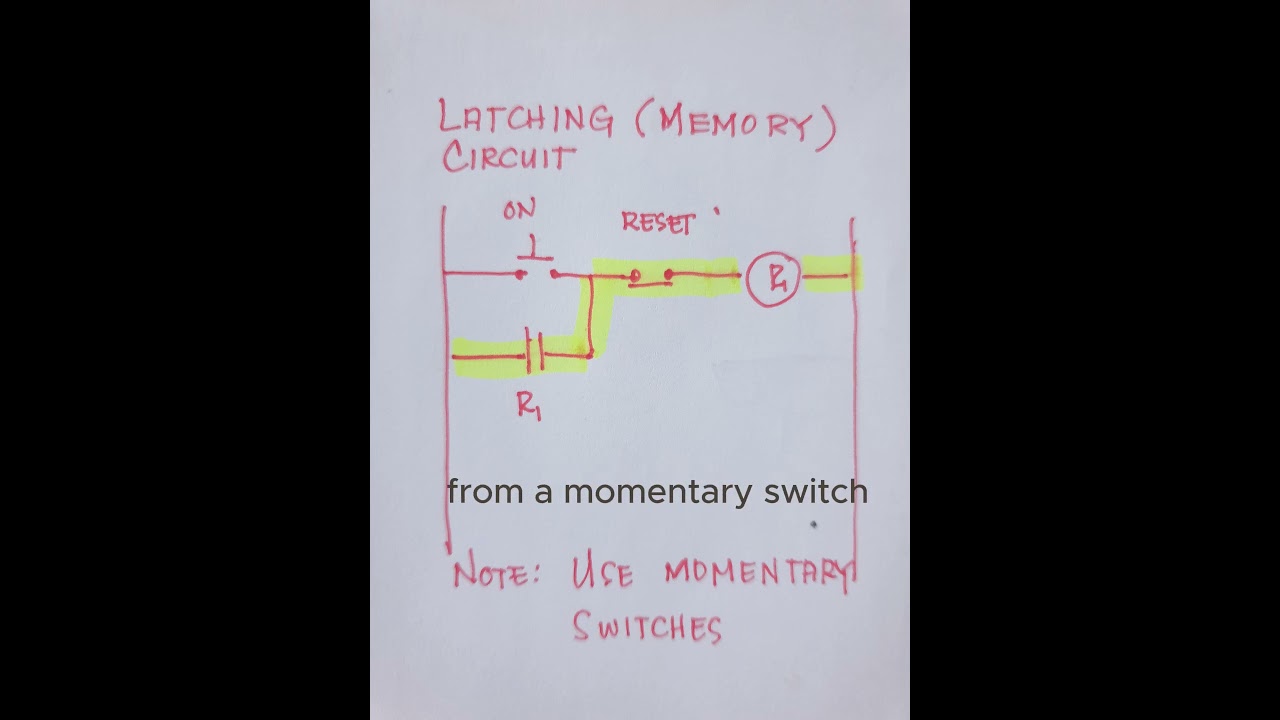 LATCHING (MEMORY)
CIRCUIT
ON
RESET
R1
R1
from a momentary switch
NOTE: USE MOMENTARY
SWITCHES